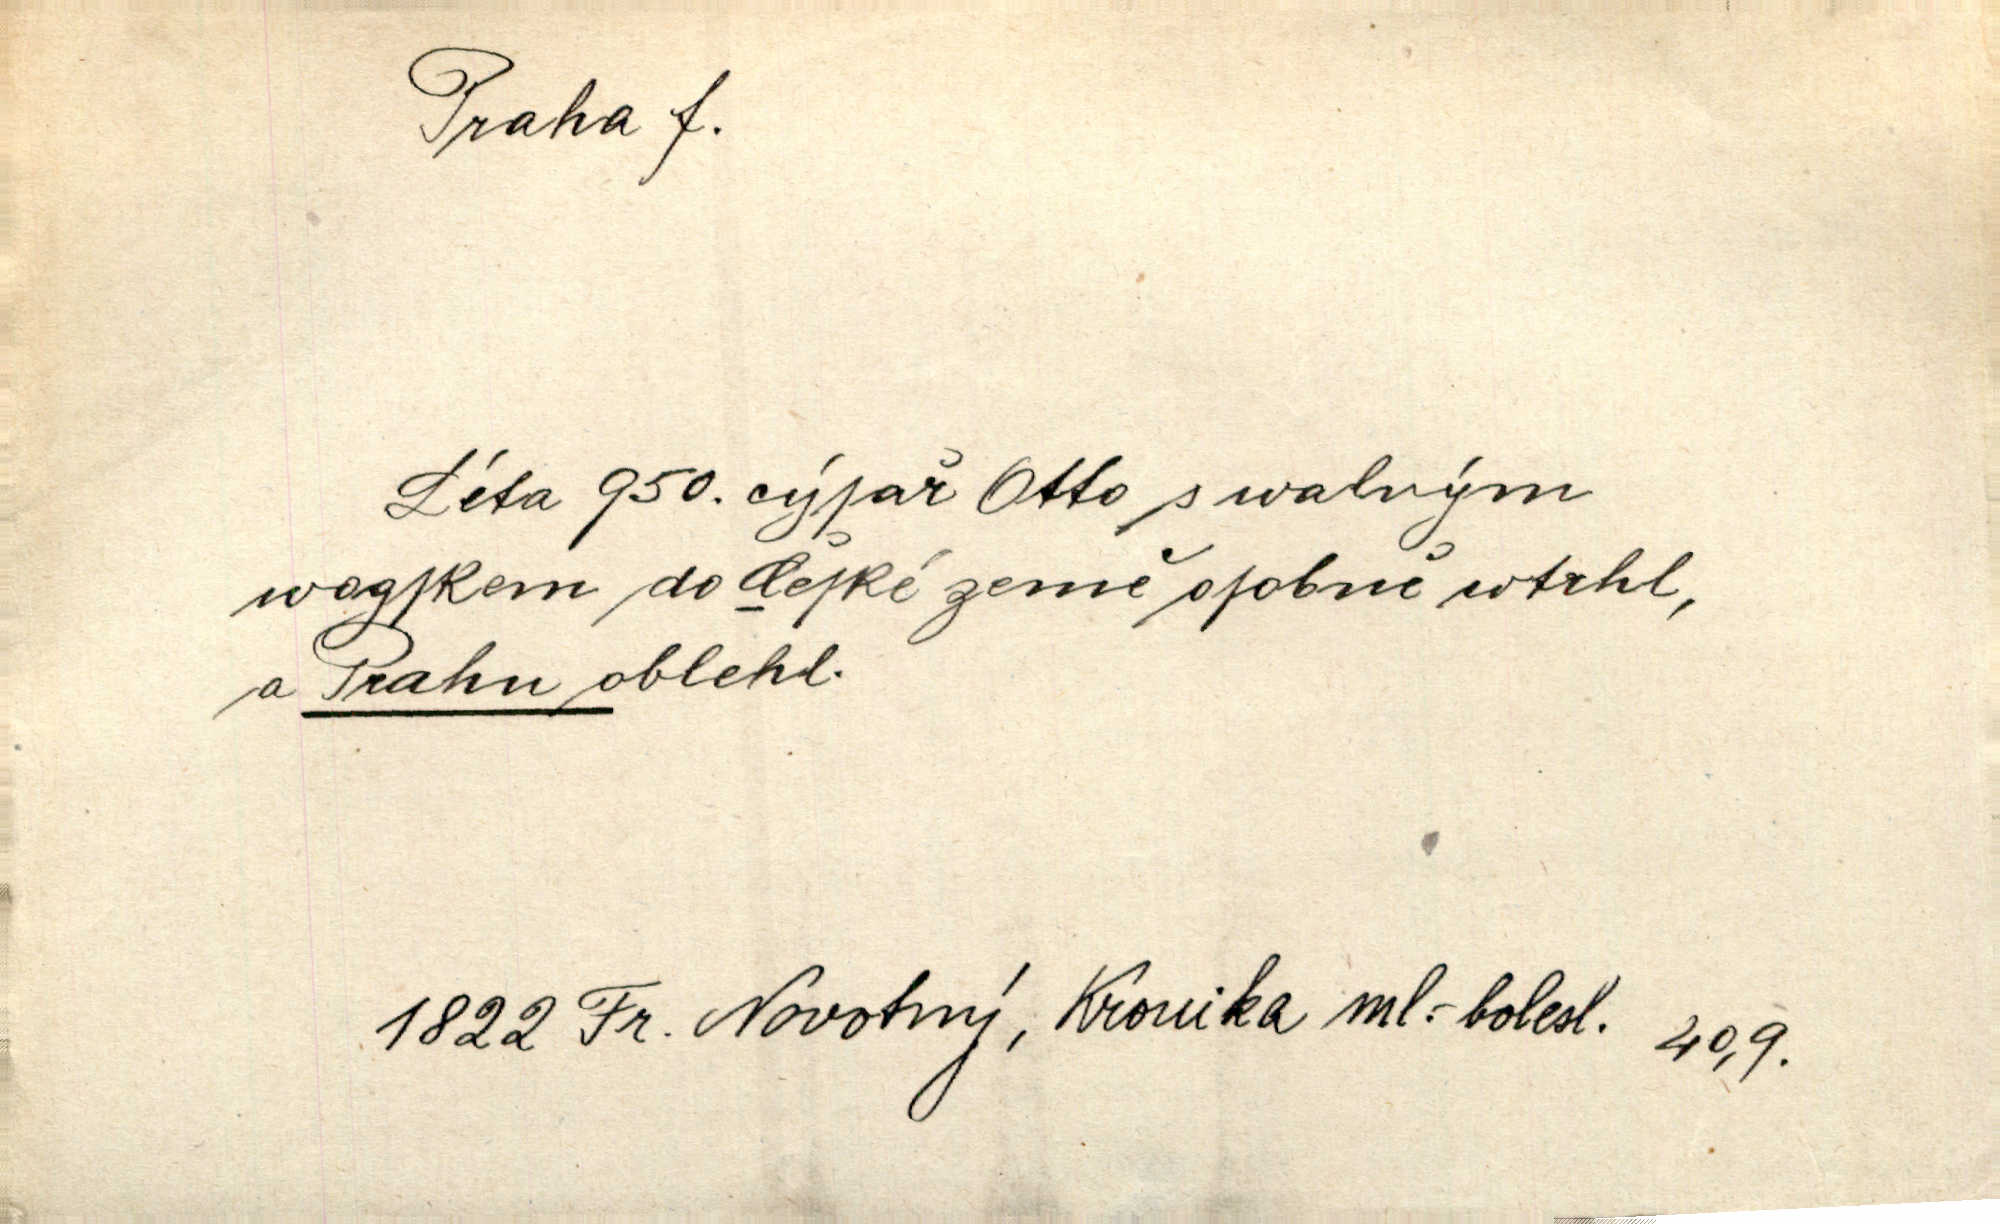 Praha f.
Léta 950. cýſař Otto s walným
wogſkem do Čeſké země oſobně wtrhl,
a Prahu oblehl.
1822 Fr. Novotný, Kronika ml.-bolesl. 40,9.